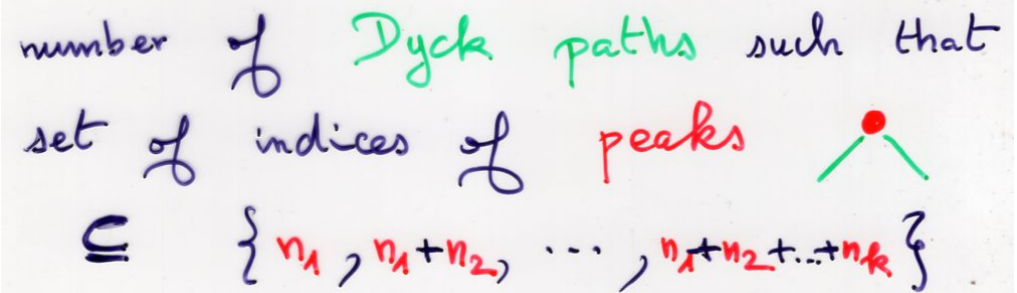 number of Dyck paths such that
set of indices of peaks
⊆ {n₁, n₁+n₂, ..., n₁+n₂+...+nₖ}